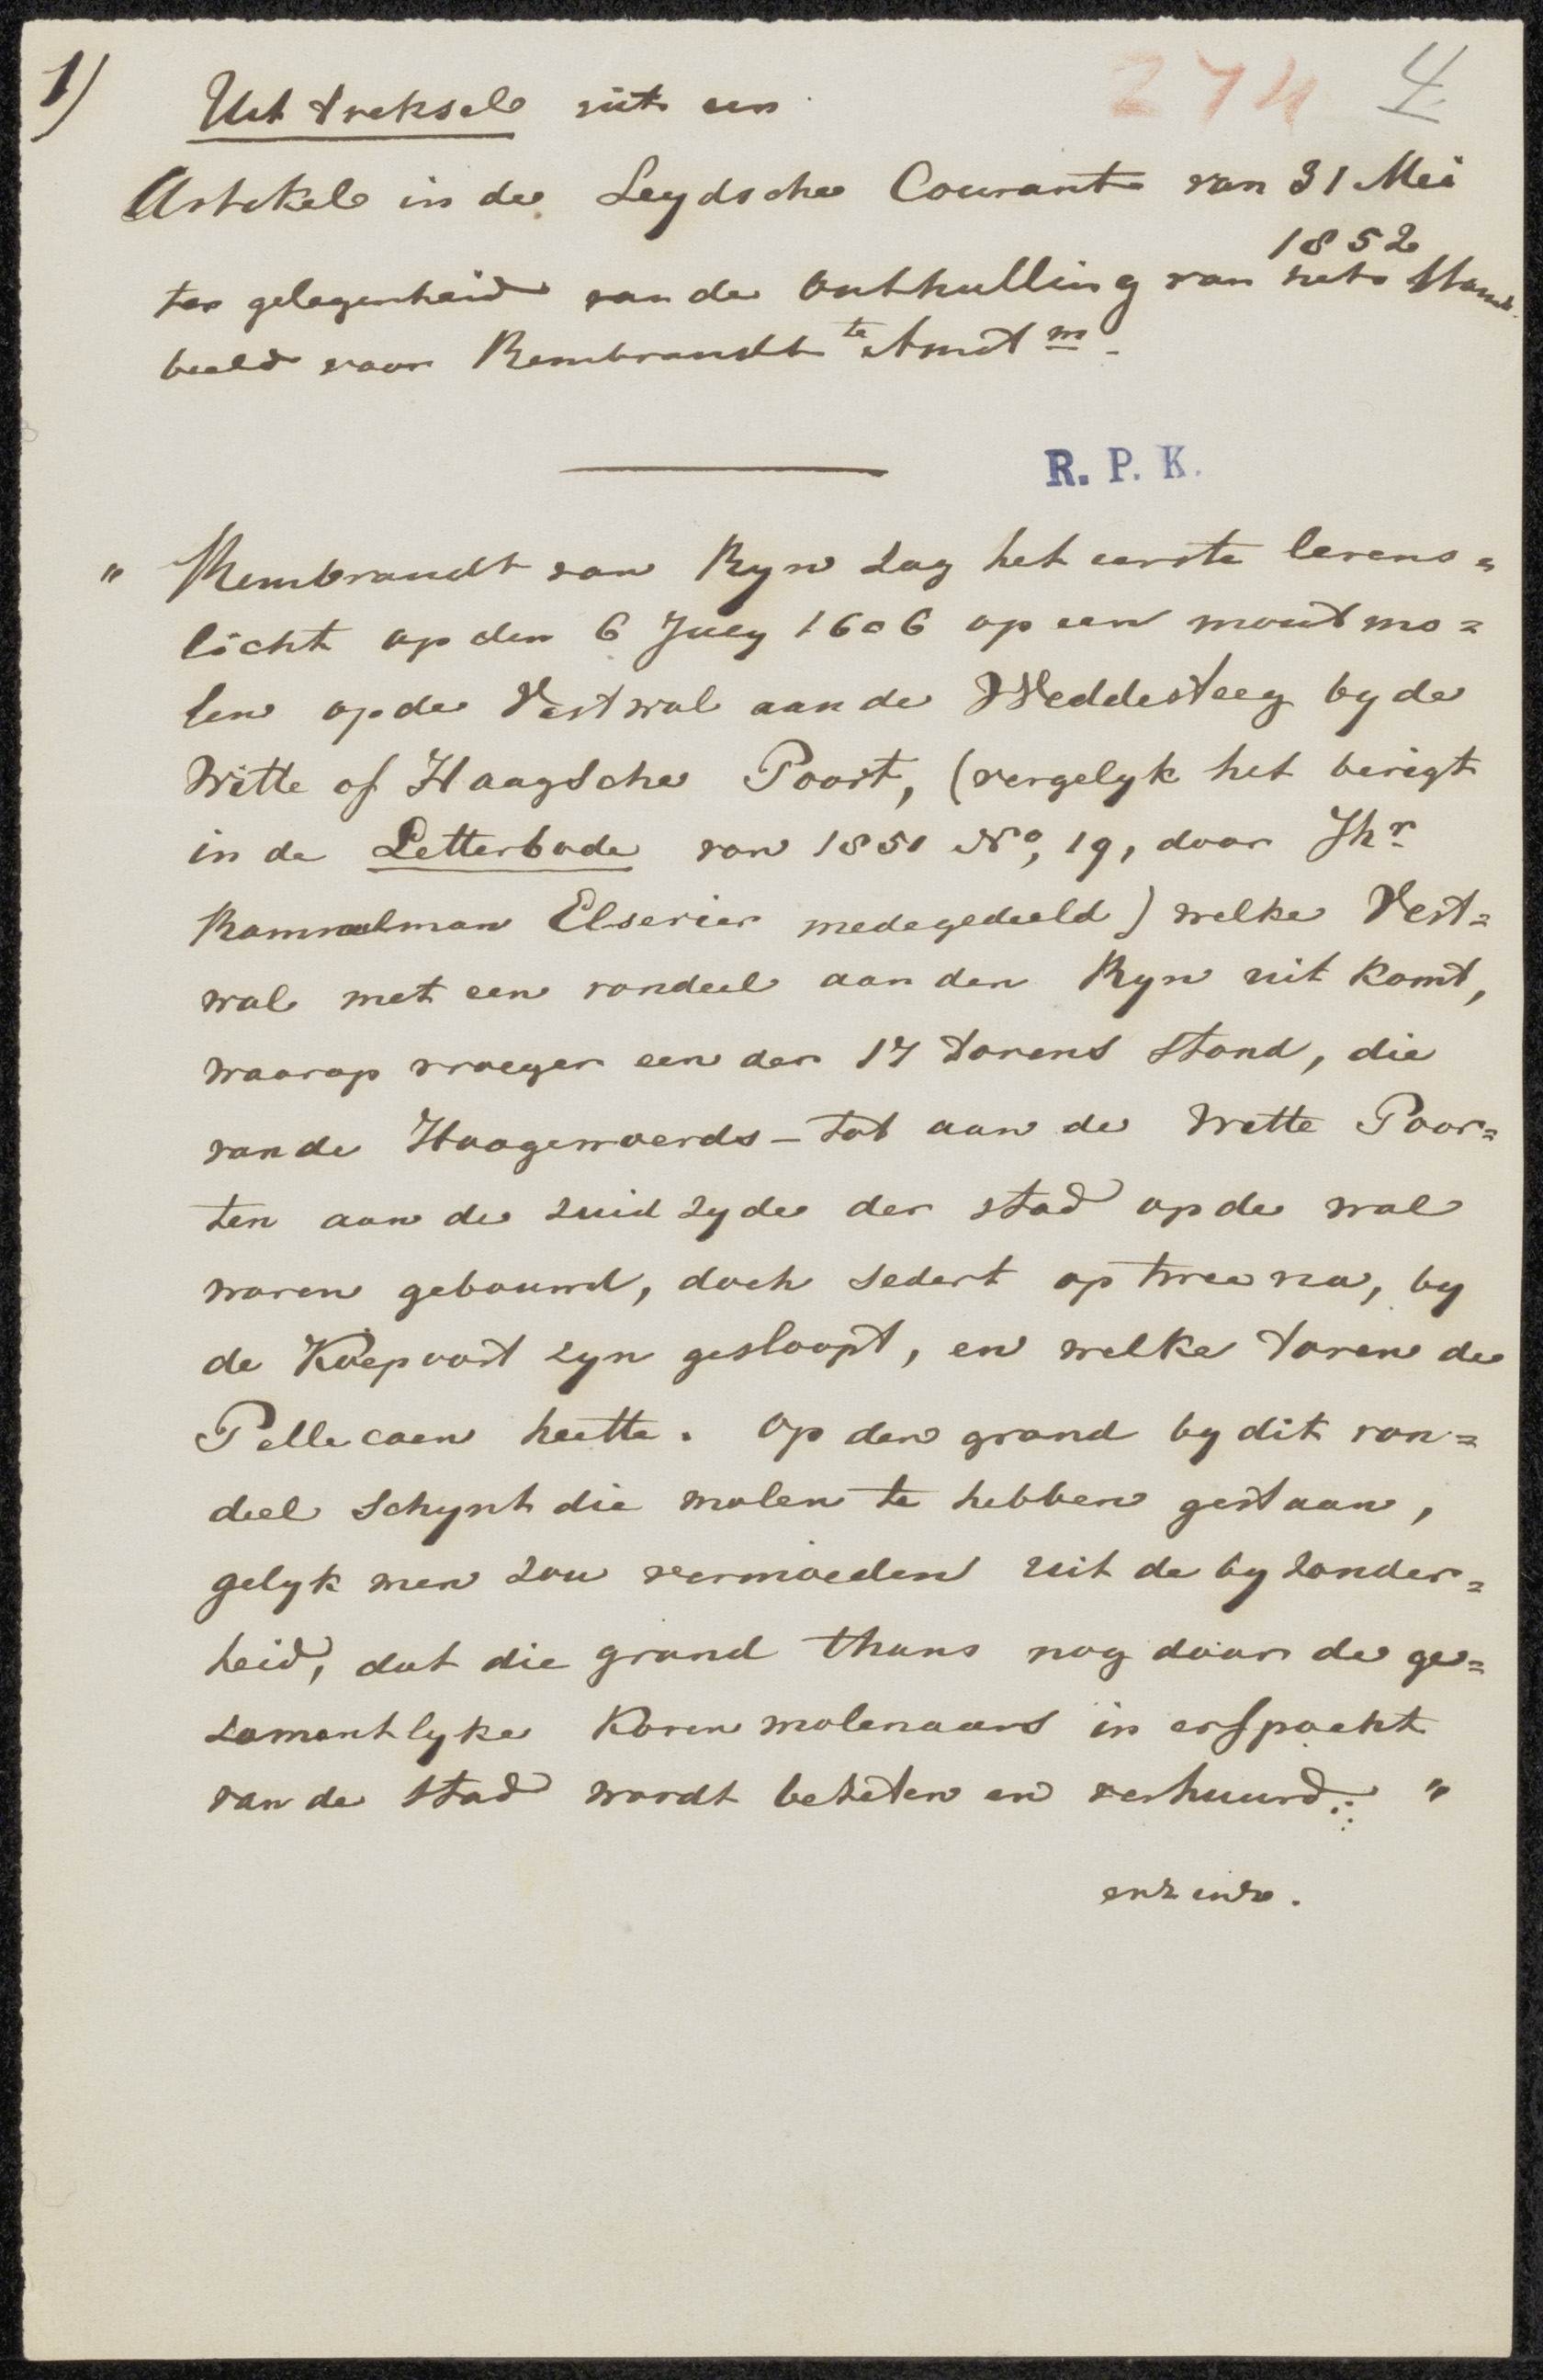 1)
274 4.
Uit treksel uit een
Artikel in de Leydsche Courant van 31 Mei
1852
ter gelegenheid van de Onthulling van het Stand-
beeld voor Rembrandt te Amstm.
R. P. K.
" Rembrandt van Ryn zag het eerste levens=
licht op den 6 July 1606 op een moutmo=
len op de Vestwal aan de Weddesteeg by de
Witte of Haagsche Poort, (vergelyk het berigt
in de Letterbode van 1851 No, 19, door Jhr
Rammelman Elsevier medegedeeld) welke Vest=
wal met een rondeel aan den Ryn uit komt,
waarop vroeger een der 17 torens stond, die
van de Hoogewoerds – tot aan de Witte Poor=
ten aan de zuid zyde der stad op de wal
waren gebouwd, doch sedert op twee na, by
de Koepoort zyn gesloopt, en welke toren de
Pellecaen heette. Op den grond by dit ron=
deel schynt die molen te hebben gestaan,
gelyk men zou vermoeden uit de byzonder=
heid, dat die grond thans nog door de ge=
zamentlyke Koren molenaars in erfpacht
van de stad wordt bezeten en verhuurd. "
enz enz.